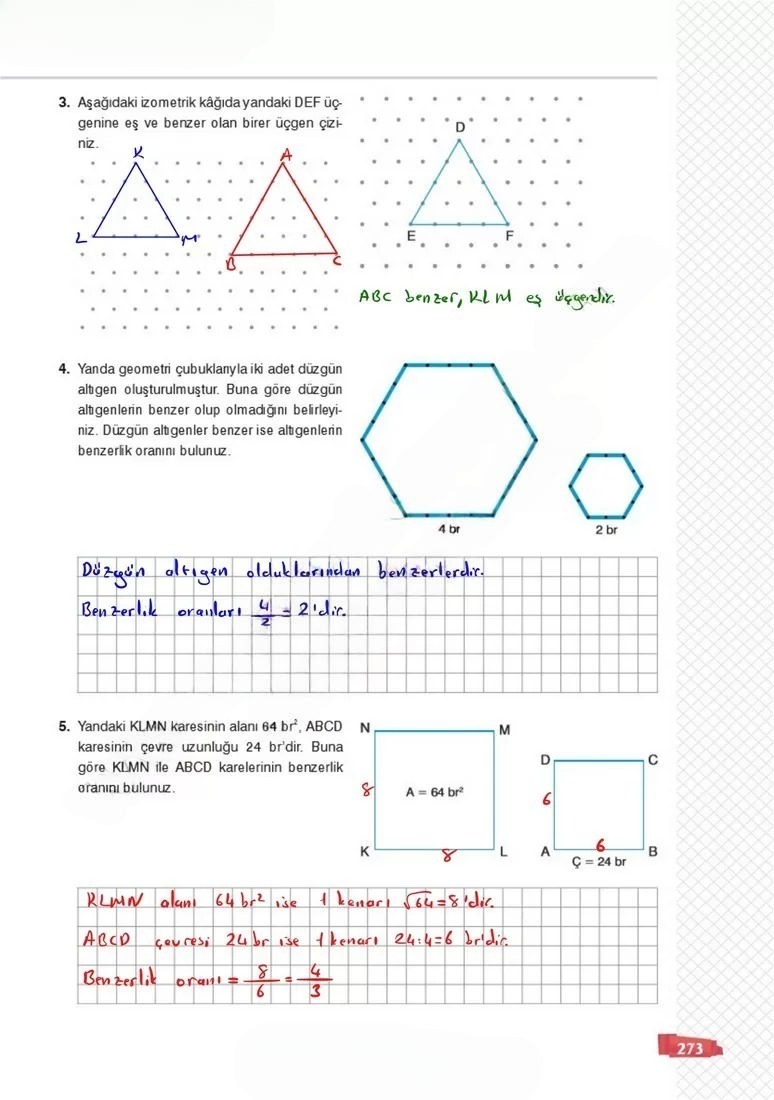 3. Aşağıdaki izometrik kâğıda yandaki DEF üç-
genine eş ve benzer olan birer üçgen çizi-
niz.
K
A
D
L
M
B
C
E
F
ABC benzer, KLM eş üçgendir.
4. Yanda geometri çubuklarıyla iki adet düzgün
altıgen oluşturulmuştur. Buna göre düzgün
altıgenlerin benzer olup olmadığını belirleyi-
niz. Düzgün altıgenler benzer ise altıgenlerin
benzerlik oranını bulunuz.
4 br
2 br
Düzgün altıgen olduklarından benzerlerdir.
Benzerlik oranları 4/2 = 2'dir.
5. Yandaki KLMN karesinin alanı 64 br², ABCD
karesinin çevre uzunluğu 24 br'dir. Buna
göre KLMN ile ABCD karelerinin benzerlik
oranını bulunuz.
N
M
D
C
8
A = 64 br²
6
K
8
L
A
6
B
Ç = 24 br
KLMN alanı 64 br² ise 1 kenarı √64=8'dir.
ABCD çevresi 24 br ise 1 kenarı 24:4=6 br'dir.
Benzerlik oranı = 8/6 = 4/3
273